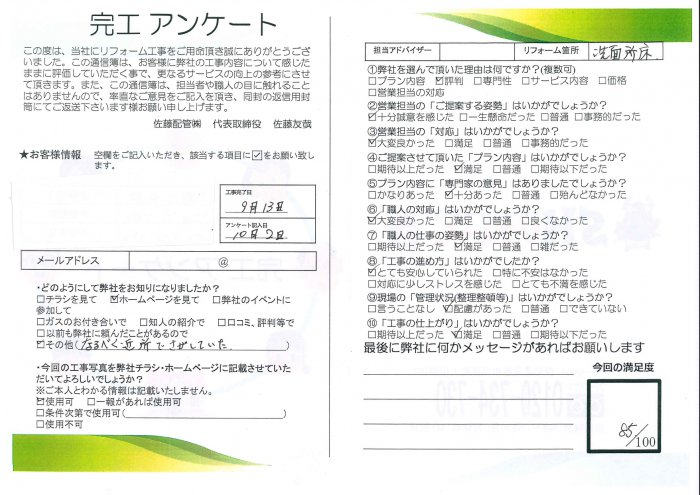 完工 アンケート
この度は、当社にリフォーム工事をご用命頂き誠にありがとうござ
いました。この通信簿は、お客様に弊社の工事内容について感じた
ままに評価していただく事で、更なるサービスの向上の参考にさせ
て頂きます。また、この通信簿は、担当者や職人の目に触れること
はありませんので、率直なご意見をご記入を頂き、同封の返信用封
筒にてご返送下さいます様お願い申し上げます。
佐藤配管㈱ 代表取締役 佐藤友哉
★お客様情報 空欄をご記入いただき、該当する項目に☑をお願い致し
ます。
工事完了日
9月13日
アンケート記入日
10月2日
メールアドレス @
・どのようにして弊社をお知りになりましたか?
□チラシを見て ☑ホームページを見て □弊社のイベントに
参加して
□ガスのお付き合いで □知人の紹介で □口コミ、評判等で
□以前も弊社に頼んだことがあるので
☑その他(なるべく近所でさがしていた)
・今回の工事写真を弊社チラシ・ホームページに記載させていた
だいてよろしいでしょうか?
※ご本人とわかる情報は記載いたしません。
☑使用可 □一報があれば使用可
□条件次第で使用可( )
□使用不可
担当アドバイザー リフォーム箇所 洗面所床
①弊社を選んで頂いた理由は何ですか?(複数可)
□プラン内容 ☑評判 □専門性 □サービス内容 □価格
□営業担当の対応
②営業担当の「ご提案する姿勢」はいかがでしょうか?
☑十分誠意を感じた □一生懸命だった □普通 □事務的だった
③営業担当の「対応」はいかがでしょうか?
☑大変良かった □満足 □普通 □事務的だった
④ご提案させて頂いた「プラン内容」はいかがでしょうか?
□期待以上だった ☑満足 □普通 □期待以下だった
⑤プラン内容に「専門家の意見」はありましたでしょうか?
□かなりあった ☑十分あった □普通 □殆んどなかった
⑥「職人の対応」はいかがでしょうか?
☑大変良かった □満足 □普通 □良くなかった
⑦「職人の仕事の姿勢」はいかがでしょうか?
□期待以上だった ☑満足 □普通 □雑だった
⑧「工事の進め方」はいかがでしたか?
☑とても安心していられた □特に不安はなかった
□対応に少しストレスを感じた □とても不満を感じた
⑨現場の「管理状況(整理整頓等)」はいかがでしょうか?
□言うことなし ☑配慮があった □普通 □できていない
⑩「工事の仕上がり」はいかがでしょうか?
□期待以上だった ☑満足 □普通 □期待以下だった
最後に弊社に何かメッセージがあればお願いします
今回の満足度
85/100